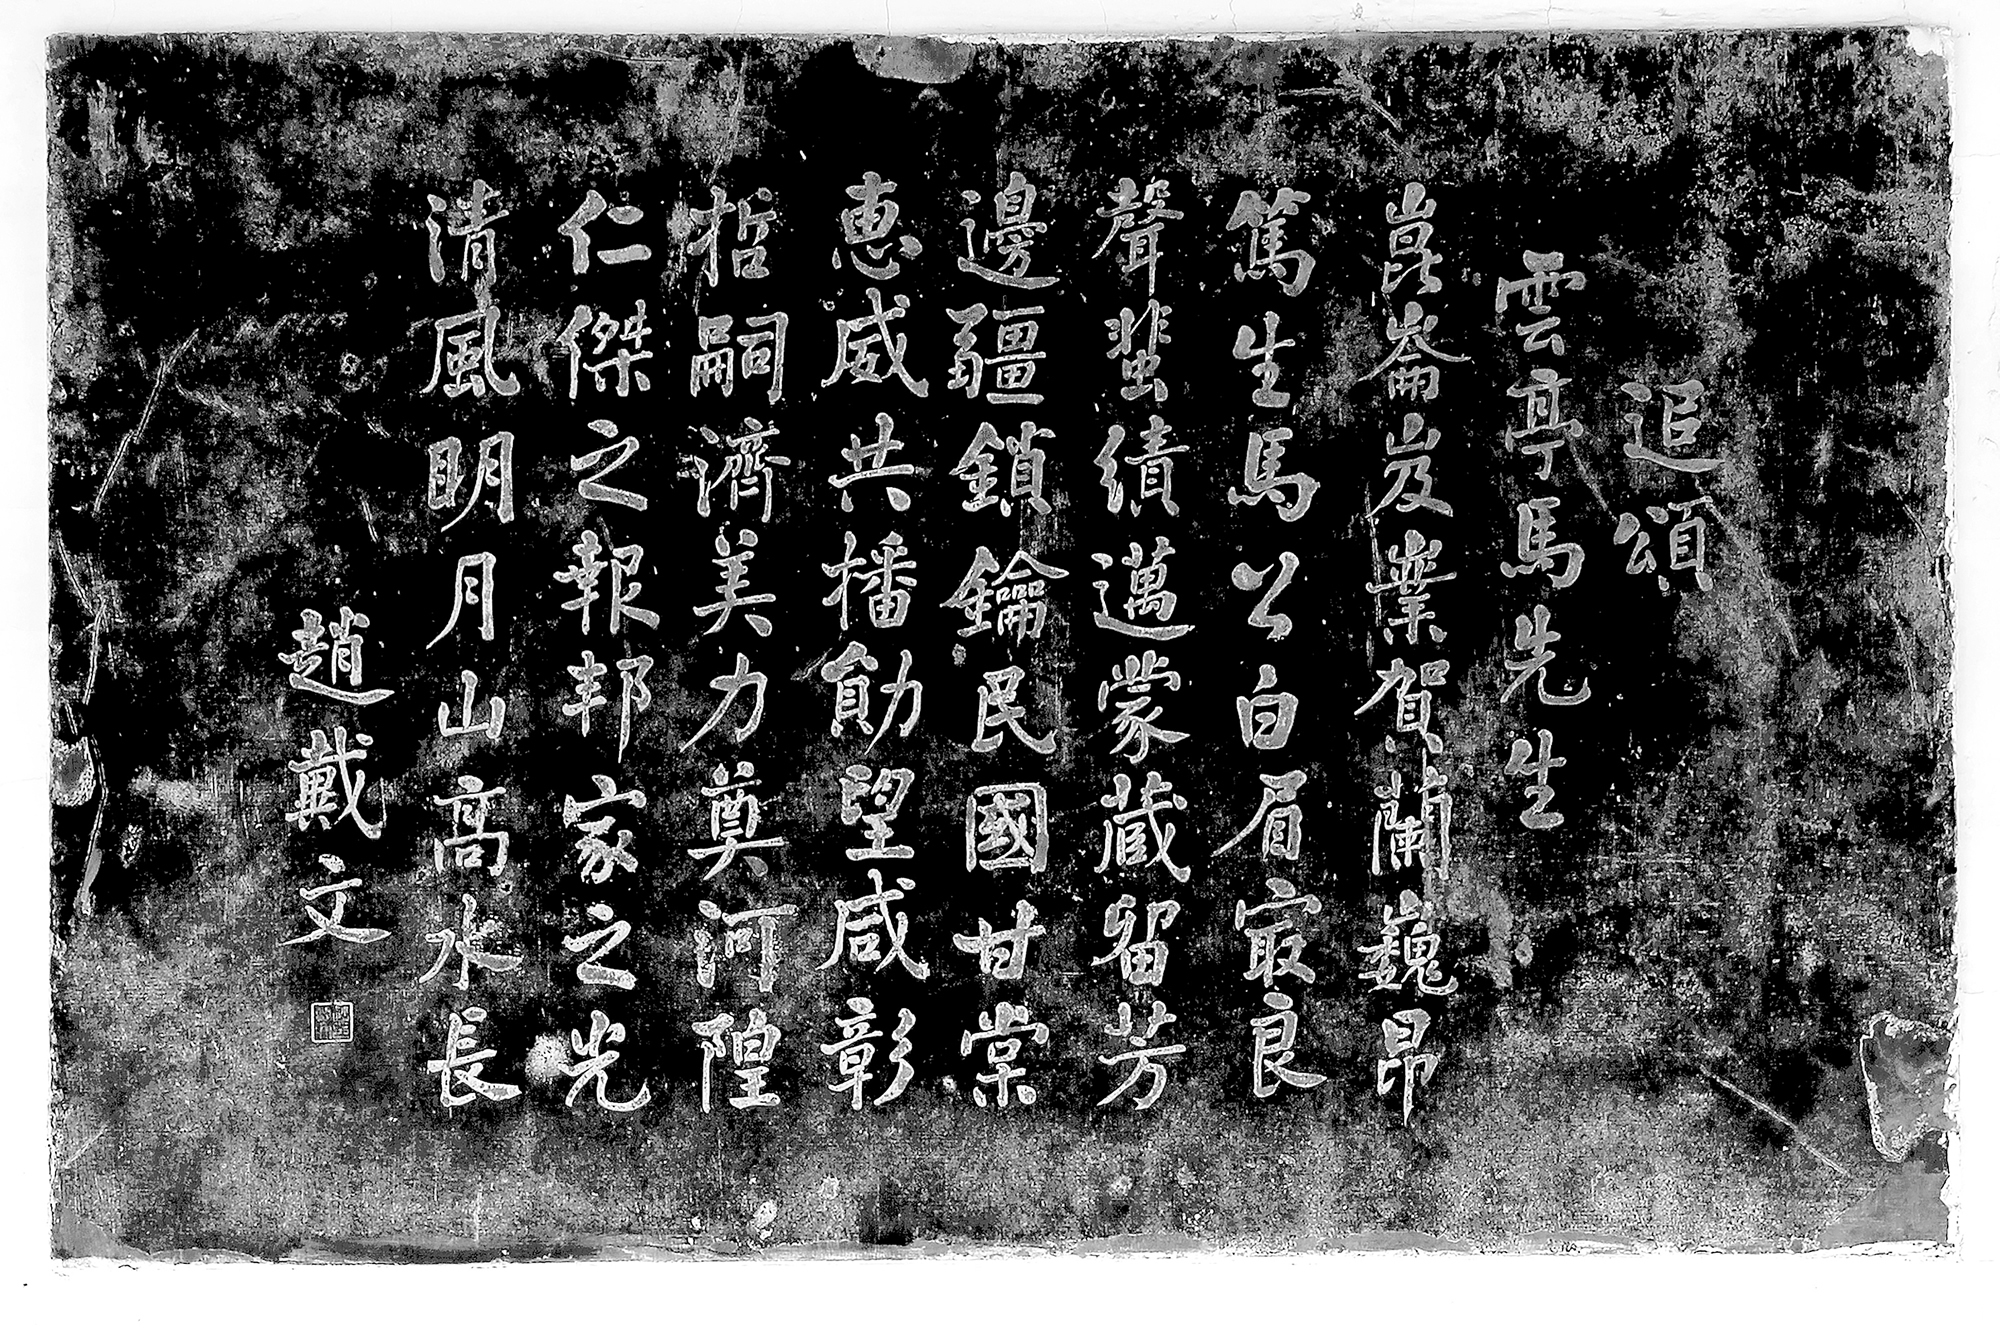 追頌
雲亭馬先生
崑崙岌業賀蘭巍昂
篤生馬公白眉㝡良
聲蜚績邁蒙藏留芳
邊疆鎖鑰民國甘棠
惠威共播勛望咸彰
哲嗣濟美力奠河湟
仁傑之報邦家之光
清風明月山高水長
趙戴文